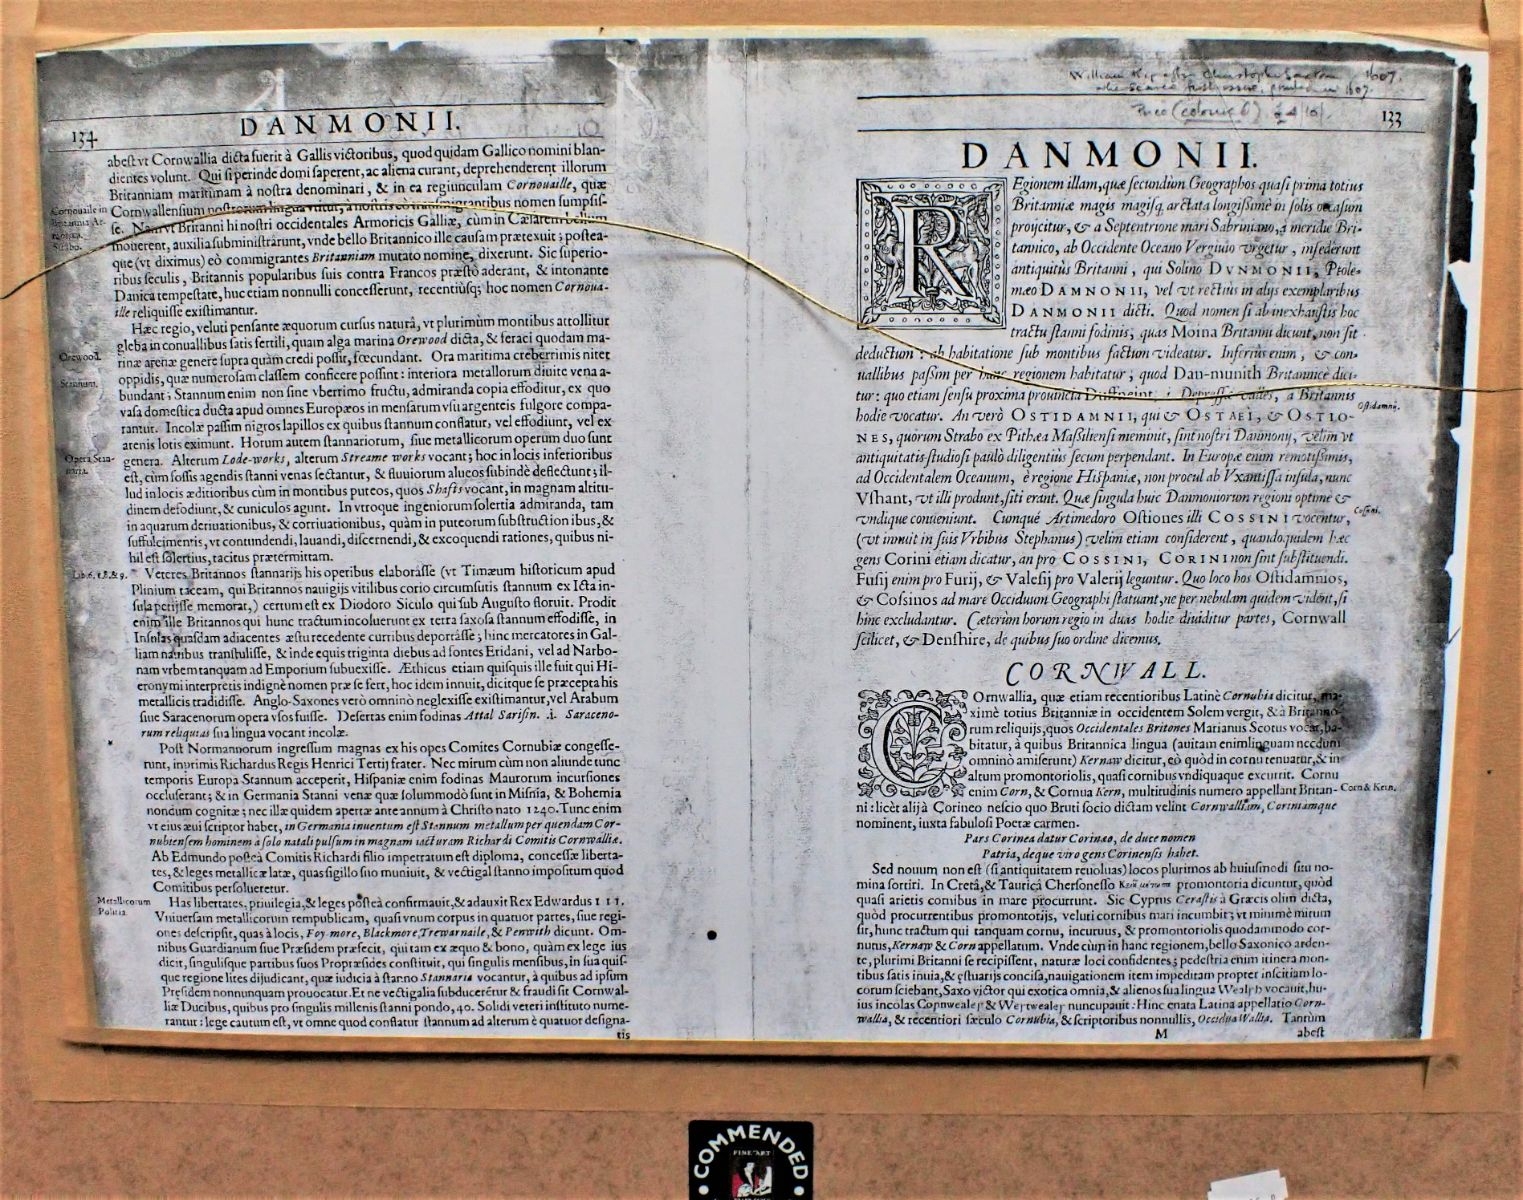 134
DANMONII.
abest vt Cornwallia dicta fuerit à Gallis victoribus, quod quidam Gallico nomini blan-
dientes volunt. Qui si perinde domi saperent, ac aliena curant, deprehenderent illorum
Britanniam maritimam à nostra denominari, & in ea regiunculam Cornouaille, quæ
Cornwallensium nostrorum lingua vtitur, à nostris eò transmigrantibus nomen sumpsis-
se. Nam vt Britanni hi nostri occidentales Armoricis Galliæ, cùm in Cæsarem bellum
mouerent, auxilia subministrârunt, vnde bello Britannico ille causam prætexuit; postea-
que (vt diximus) eò commigrantes Britanniam mutato nomine, dixerunt. Sic superio-
ribus seculis, Britannis popularibus suis contra Francos præstò aderant, & intonante
Danica tempestate, huc etiam nonnulli concesserunt, recentiúsq; hoc nomen Cornoua-
ille reliquisse existimantur.
Cornouaille in
Strabo.
Hæc regio, veluti pensante æquorum cursus naturâ, vt plurimùm montibus attollitur
gleba in conuallibus satis fertili, quam alga marina Orewood dicta, & feraci quodam ma-
rinæ arenæ genere supra quàm credi possit, fœcundant. Ora maritima creberrimis nitet
oppidis, quæ numerosam classem conficere possint: interiora metallorum diuite vena a-
bundant; Stannum enim non sine vberrimo fructu, admiranda copia effoditur, ex quo
vasa domestica ducta apud omnes Europæos in mensarum vsu argenteis fulgore compa-
rantur. Incolæ passim nigros lapillos ex quibus stannum conflatur, vel effodiunt, vel ex
arenis lotis eximunt. Horum autem stannariorum, siue metallicorum operum duo sunt
genera. Alterum Lode-works, alterum Streame works vocant; hoc in locis inferioribus
est, cùm fossis agendis stanni venas sectantur, & fluuiorum alueos subindè deflectunt; il-
lud in locis æditioribus cùm in montibus puteos, quos Shafts vocant, in magnam altitu-
dinem defodiunt, & cuniculos agunt. In vtroque ingeniorum solertia admiranda, tam
in aquarum deriuationibus, & corriuationibus, quàm in puteorum substructionibus, &
suffulcimentis, vt contundendi, lauandi, discernendi, & excoquendi rationes, quibus ni-
hil est solertius, tacitus prætermittam.
Orewood.
Stannum.
Opera Stan-
Veteres Britannos stannarijs his operibus elaborâsse (vt Timæum historicum apud
Plinium taceam, qui Britannos nauigijs vitilibus corio circumsutis stannum ex Icta in-
sula petijsse memorat,) certum est ex Diodoro Siculo qui sub Augusto floruit. Prodit
enim ille Britannos qui hunc tractum incoluerunt ex terra saxosa stannum effodisse, in
Insulas quasdam adiacentes æstu recedente curribus deportâsse; hinc mercatores in Gal-
liam nauibus transtulisse, & inde equis triginta diebus ad fontes Eridani, vel ad Narbo-
nam vrbem tanquam ad Emporium subuexisse. Æthicus etiam quisquis ille fuit qui Hi-
eronymi interpretis indignè nomen præ se fert, hoc idem innuit, dicitque se præcepta his
metallicis tradidisse. Anglo-Saxones verò omninò neglexisse existimantur, vel Arabum
siue Saracenorum opera vsos fuisse. Desertas enim fodinas Attal Sarisin. .i. Saraceno-
rum reliquias sua lingua vocant incolæ.
Lib. 6.
Post Normannorum ingressum magnas ex his opes Comites Cornubiæ congesse-
runt, inprimis Richardus Regis Henrici Tertij frater. Nec mirum cùm non aliunde tunc
temporis Europa Stannum acceperit, Hispaniæ enim fodinas Maurorum incursiones
occluserant; & in Germania Stanni venæ quæ solummodò sunt in Misnia, & Bohemia
nondum cognitæ; nec illæ quidem apertæ ante annum à Christo nato 1240. Tunc enim
vt eius æui scriptor habet, in Germania inuentum est Stannum metallum per quendam Cor-
nubiensem hominem à solo natali pulsum in magnam iacturam Richardi Comitis Cornwalliæ.
Ab Edmundo posteà Comitis Richardi filio impetratum est diploma, concessæ liberta-
tes, & leges metallicæ latæ, quas sigillo suo muniuit, & vectigal stanno impositum quod
Comitibus persolueretur.
Has libertates, priuilegia, & leges posteà confirmauit, & adauxit Rex Edwardus III.
Vniuersam metallicorum rempublicam, quasi vnum corpus in quatuor partes, siue regi-
ones descripsit, quas à locis, Foy-more, Blackmore, Trewarnaile, & Penwith dicunt. Om-
nibus Guardianum siue Præsidem præfecit, qui tam ex æquo & bono, quàm ex lege ius
dicit, singulisque partibus suos Propræsides constituit, qui singulis mensibus, in sua quis-
que regione lites dijudicant, quæ iudicia à stanno Stannaria vocantur, à quibus ad ipsum
Præsidem nonnunquam prouocatur. Et ne vectigalia subducerétur & fraudi sit Cornwal-
liæ Ducibus, quibus pro singulis millenis stanni pondo, 40. Solidi veteri instituto nume-
rantur: lege cautum est, vt omne quod conflatur stannum ad alterum è quatuor designa-
tis
Metallicorum
Politia.
William Kip after Christopher Saxton 1607.
the scarce first issue, printed in 1607.
Price (coloured)
133
DANMONII.
REgionem illam, quæ secundùm Geographos quasi prima totius
Britanniæ magis magisq. arctata longissimè in solis occasum
proijcitur, & a Septentrione mari Sabriniano, à meridie Bri-
tannico, ab Occidente Oceano Vergiuio vrgetur, insederunt
antiquitùs Britanni, qui Solino DVNMONII, Ptole-
mæo DAMNONII, vel vt rectius in alijs exemplaribus
DANMONII dicti. Quod nomen si ab inexhaustis hoc
tractu stanni fodinis, quas Moina Britanni dicunt, non sit
deductum: ab habitatione sub montibus factum videatur. Inferius enim, & con-
uallibus passim per hanc regionem habitatur, quod Dan-munith Britannicè dici-
tur: quo etiam sensu proxima prouincia Duffneint, .i. Depressæ valles, a Britannis
hodie vocatur. An verò OSTIDAMNII, qui & OSTAEI, & OSTIO-
NES, quorum Strabo ex Pithæa Massiliensi meminit, sint nostri Danmonij, velim vt
antiquitatis studiosi paulò diligentius secum perpendant. In Europæ enim remotissimis,
ad Occidentalem Oceanum, è regione Hispaniæ, non procul ab Vxantissa insula, nunc
Vshant, vt illi produnt, siti erant. Quæ singula huic Danmoniorum regioni optimè &
vndique conueniunt. Cumqué Artimedoro Ostiones illi COSSINI vocentur,
(vt innuit in suis Vrbibus Stephanus) velim etiam considerent, quandoquidem hæc
gens Corini etiam dicatur, an pro COSSINI, CORINI non sint substituendi.
Fusij enim pro Furij, & Valesij pro Valerij leguntur. Quo loco hos Ostidamnios,
& Cossinos ad mare Occiduum Geographi statuant, ne per nebulam quidem vident, si
hinc excludantur. Cæterùm horum regio in duas hodie diuiditur partes, Cornwall
scilicet, & Denshire, de quibus suo ordine dicemus.
Ostidamnij.
Cossini.
CORNWALL.
COrnwallia, quæ etiam recentioribus Latinè Cornubia dicitur, ma-
ximè totius Britanniæ in occidentem Solem vergit, & à Britanno-
rum reliquijs, quos Occidentales Britones Marianus Scotus vocat, ha-
bitatur, à quibus Britannica lingua (auitam enim linguam necdum
omninò amiserunt) Kernaw dicitur, eò quòd in cornu tenuatur, &in
altum promontoriolis, quasi cornibus vndiquaque excurrit. Cornu
enim Corn, & Cornua Kern, multitudinis numero appellant Britan-
ni: licèt alij à Corineo nescio quo Bruti socio dictam velint Cornwalliam, Coriniamque
nominent, iuxta fabulosi Poetæ carmen.
Corn & Kern.
Pars Corinea datur Corinæo, de duce nomen
Patria, deque viro gens Corinensis habet.
Sed nouum non est (si antiquitatem reuoluas) locos plurimos ab huiusmodi situ no-
mina sortiri. In Cretâ, & Tauricâ Chersonesso promontoria dicuntur, quòd
quasi arietis cornibus in mare procurrunt. Sic Cyprus Cerastis à Græcis olim dicta,
quòd procurrentibus promontorijs, veluti cornibus mari incumbit; vt minimè mirum
sit, hunc tractum qui tanquam cornu, incuruus, & promontoriolis quodammodo cor-
nutus, Kernaw & Corn appellatum. Vnde cùm in hanc regionem, bello Saxonico arden-
te, plurimi Britanni se recipissent, naturæ loci confidentes; pedestria enim itinera mon-
tibus satis inuia, & estuarijs concisa, nauigationem item impeditam propter inscitiam lo-
corum sciebant, Saxo victor qui exotica omnia, & alienos sua lingua Wealsh vocauit, hu-
ius incolas Cornwealer & Wertwealer nuncupauit: Hinc enata Latina appellatio Corn-
wallia, & recentiori sæculo Cornubia, & scriptoribus nonnullis, Occidua Wallia. Tantùm
M abest
COMMENDED
FINE ART